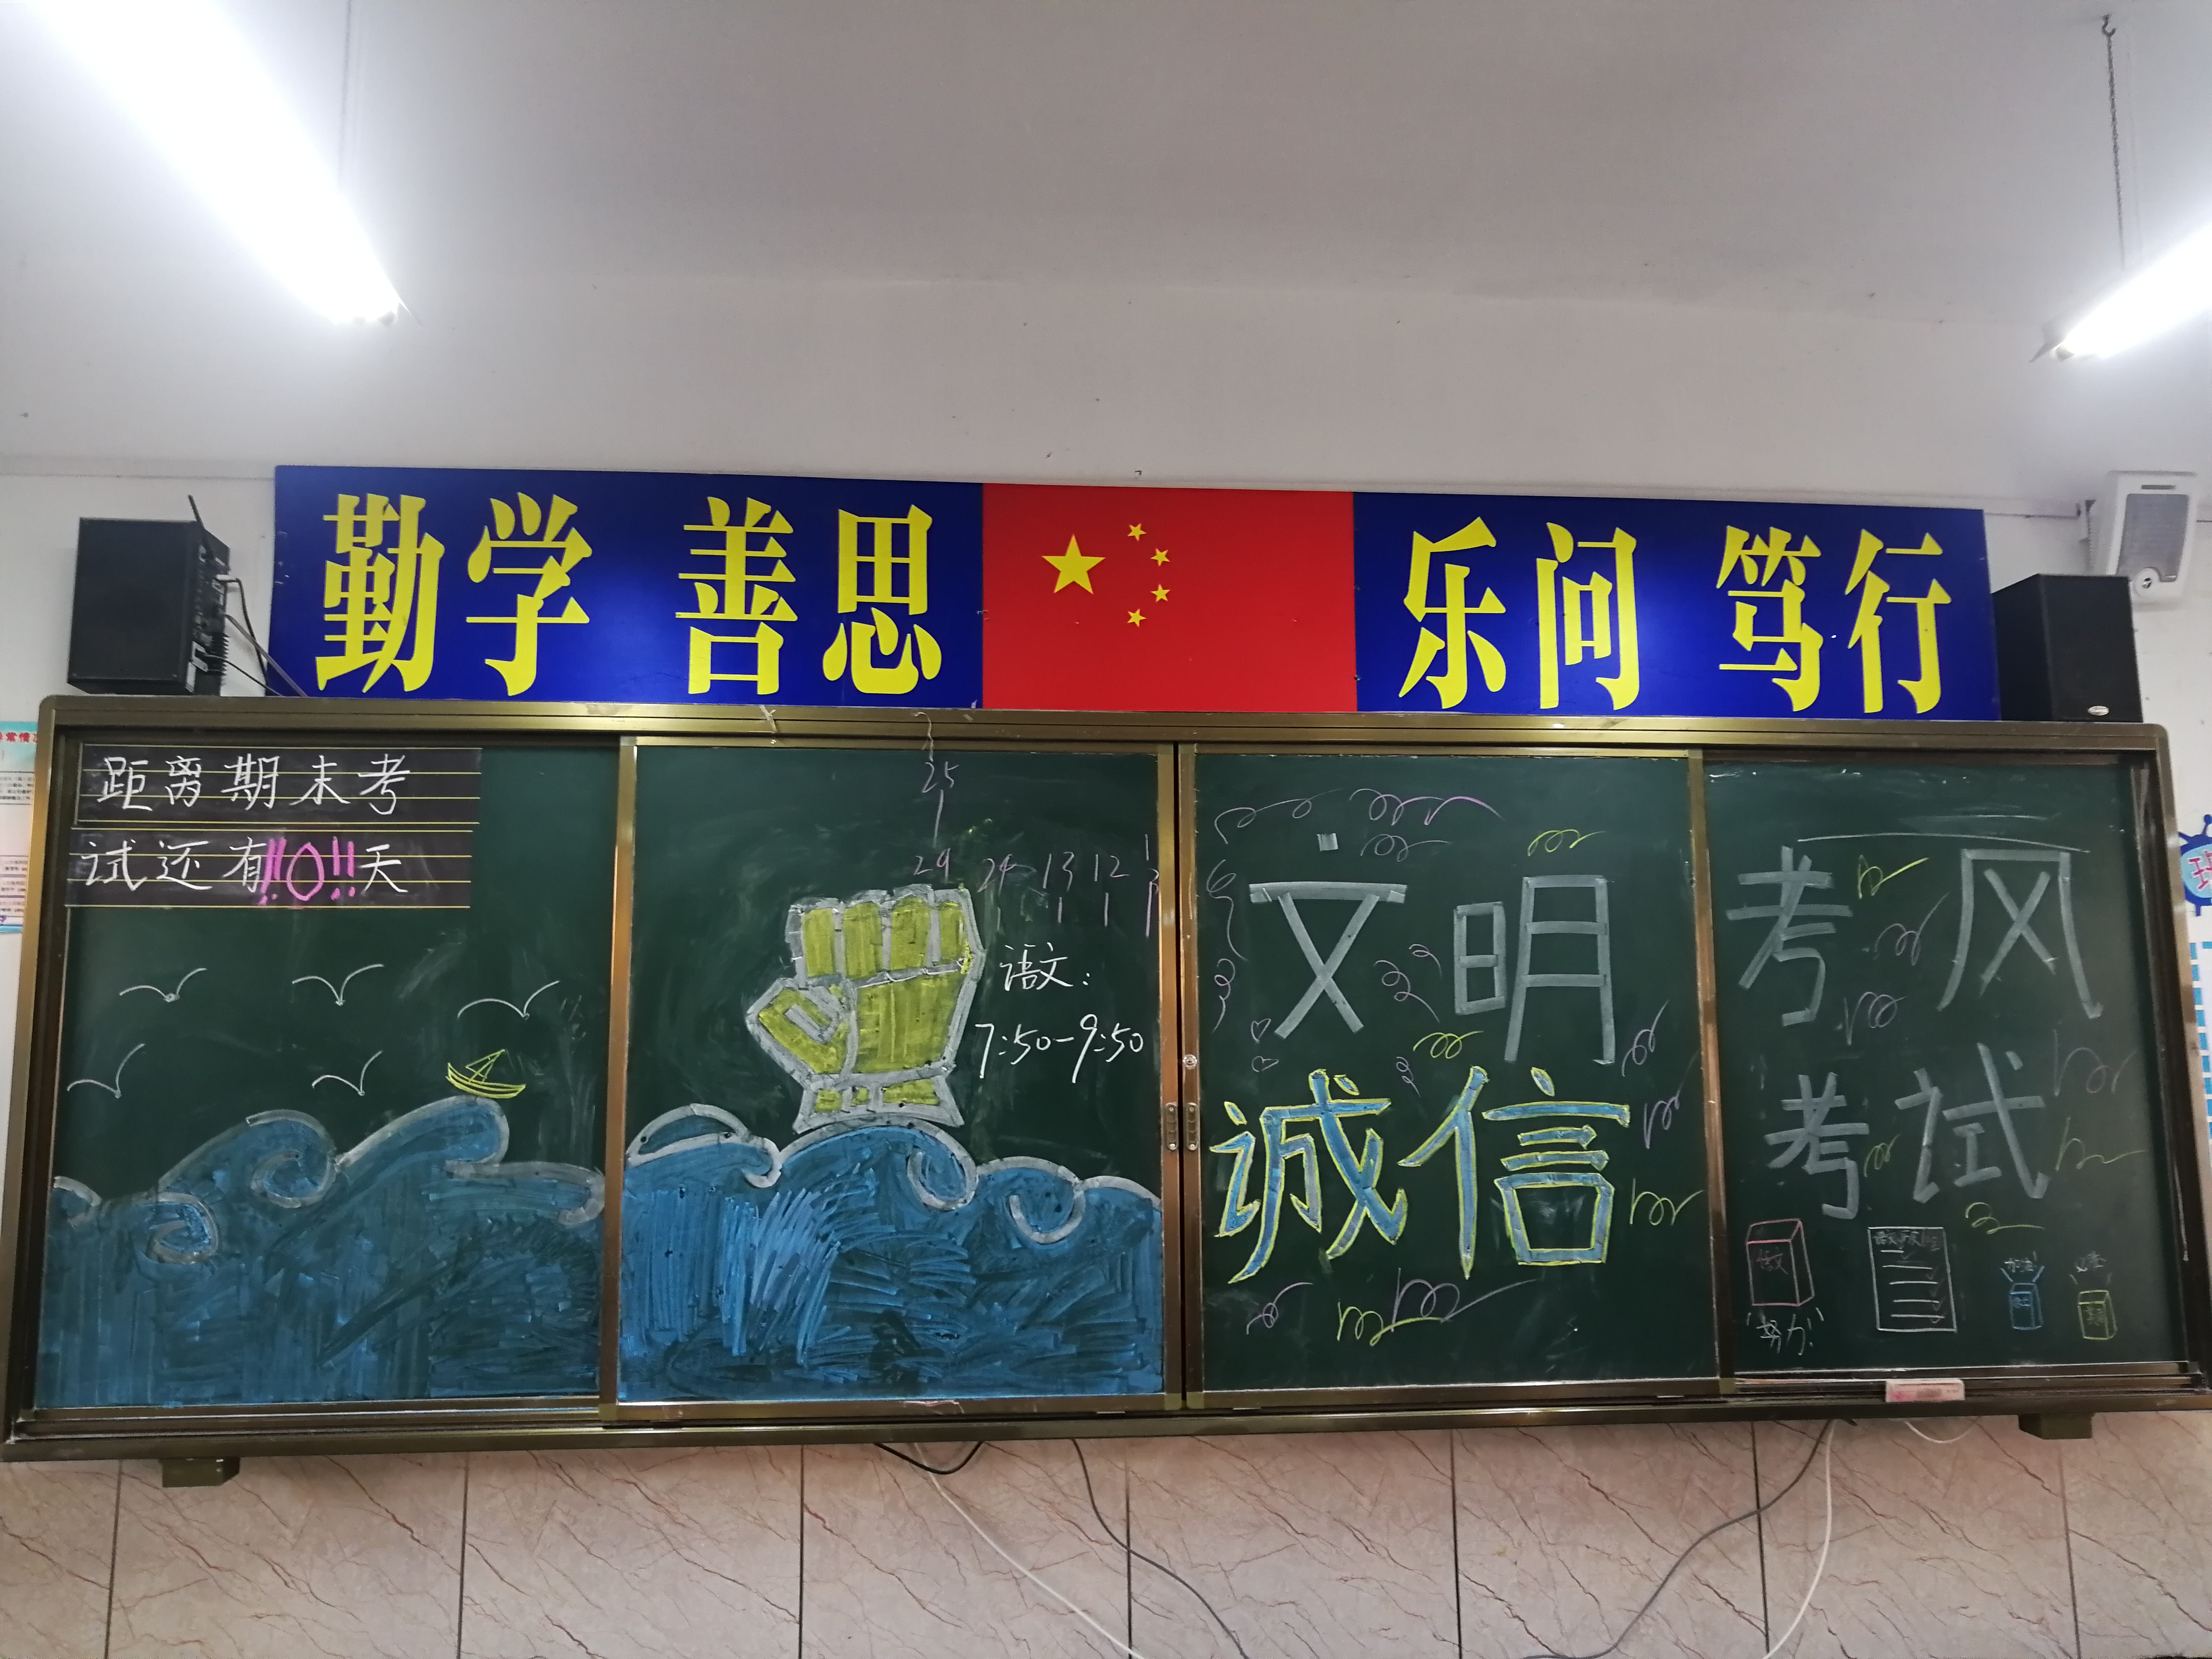 勤学 善思 乐问 笃行
距离期末考
试还有!!0!!天
25
29 24 13 12
语文:
7:50-9:50
文明 考风
诚信 考试
语文
努力!
加油!